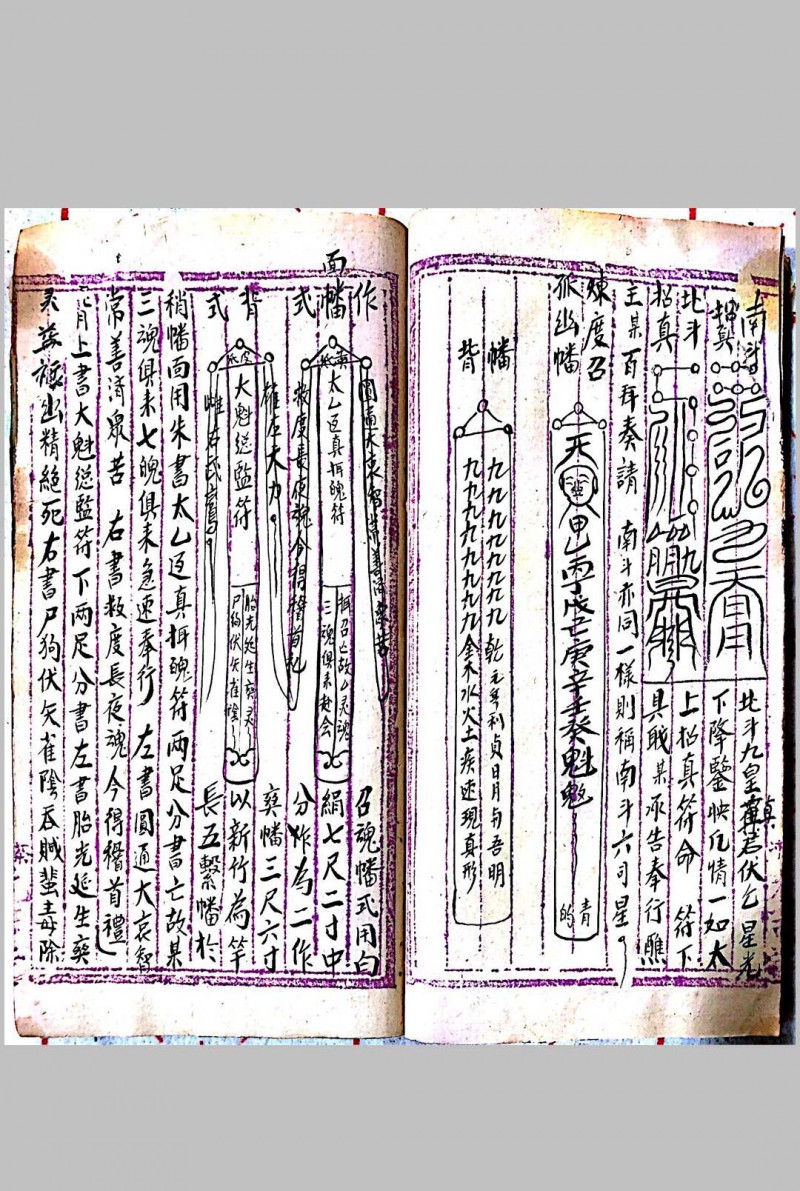 南斗
北斗九皇真君伏乞星光
下降鑒快凡情一如太
北斗
招真
上招真符命 符下
具職某承告奉行醮
主某百拜奏請 南斗亦同一樣則稱南斗六司星
煉度召
孤幽幡
天
甲乙丙丁戊己庚辛壬癸魁魒
青的
幡
背
九九九九九九九 乾元亨利貞日月旬吾明
九九九九九九九九 金木水火土疾速現真形
作
面幡
式
圓通大哀智常善濟眾苦
太乙迳真抈魄符
抈召亡故某灵魂
三魂俱來赴會
救度長夜魂今得稽首礼
背
式
雄左大力
大魁總監符
胎光延生爽灵
尸狗伏矢雀陰
召魂幡式用白
絹七尺二寸中
分作為二作
幡三尺六寸
以新竹為竿
長五繫幡於
稍幡面用朱書太乙迳真抈魄符兩足分書亡故某
三魂俱來七魄俱來急速奉行 左書圓通大哀智
常善濟眾苦 右書救度長夜魂今得稽首禮
背上書大魁總監符下兩足分書左書胎光延生爽
灵幽精絕死右書尸狗伏矢雀陰吞賊蜚毒除